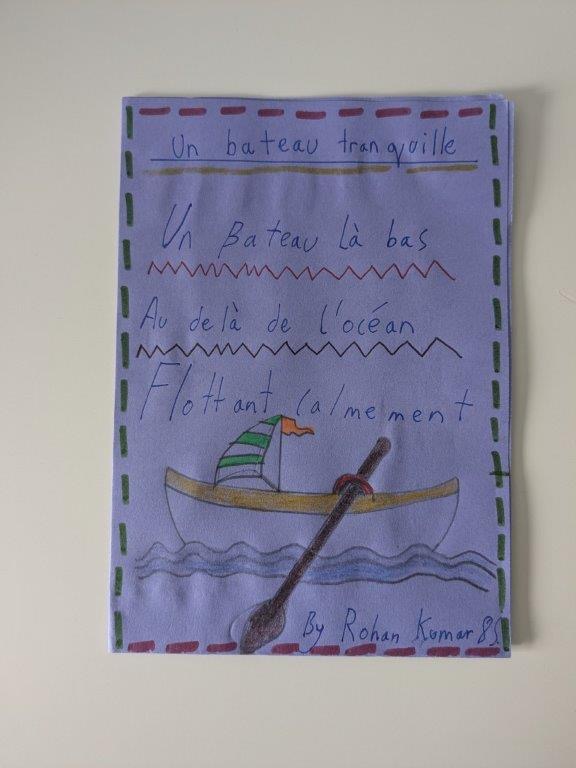 Un bateau tranquille
Un Bateau là bas
Au delà de l'océan
Flottant calmement
By Rohan Kumar 8S